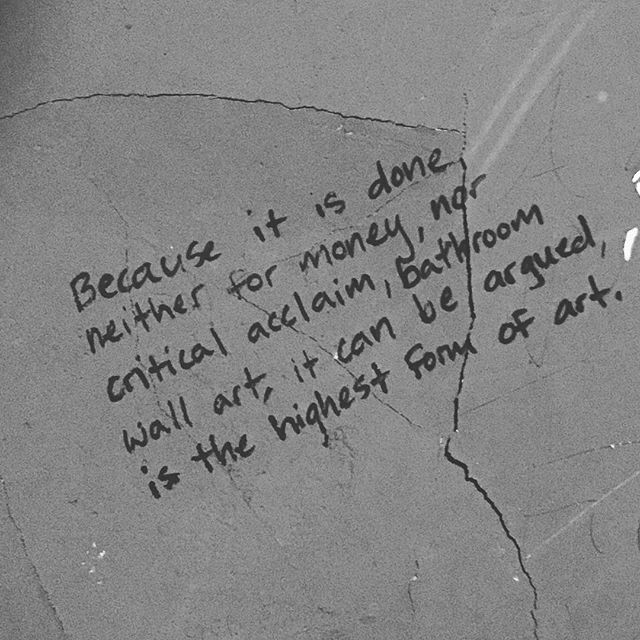 Because it is done
neither for money, nor
critical acclaim, bathroom
wall art, it can be argued,
is the highest form of art.